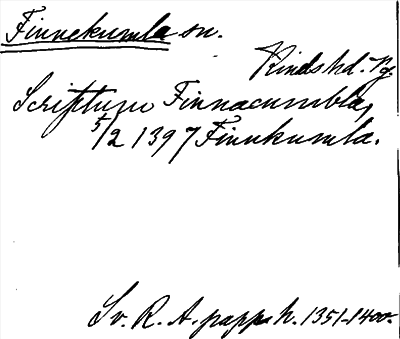 Finnekumla sn.
Kinds hd. Vg.
Scriptum Finnacumbla,
5/2 1397 Finnkumla.
Sv. R. A. papp. h. 1351-1400.